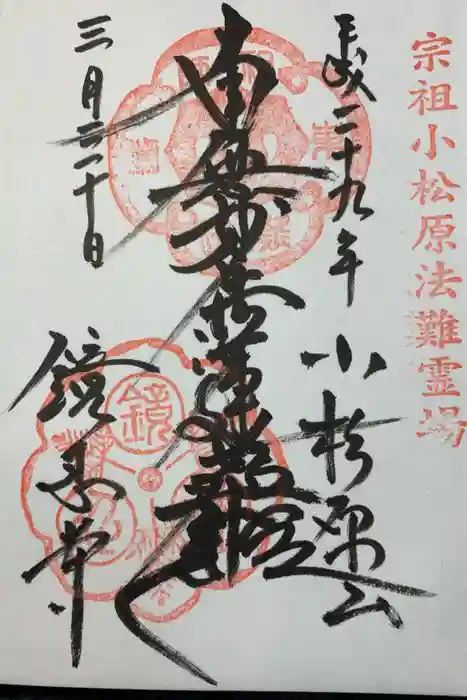 宗祖小松原法難霊場
平成二十九年
小松原山
南無妙法蓮華経
三月二十日
鏡忍寺
鏡